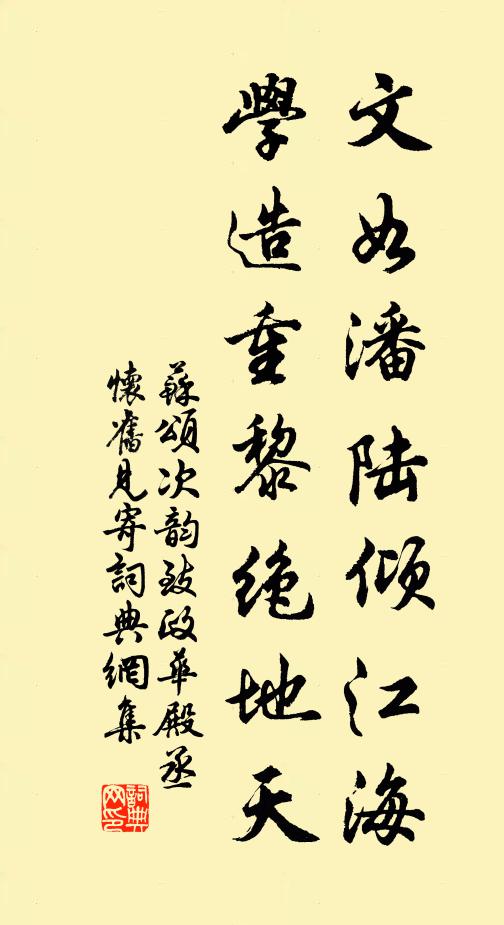 文如潘陆倾江海
學造重黎絶地天
蘇頌次韵致政華殿丞
懷舊見寄詞典網集
詞典网印